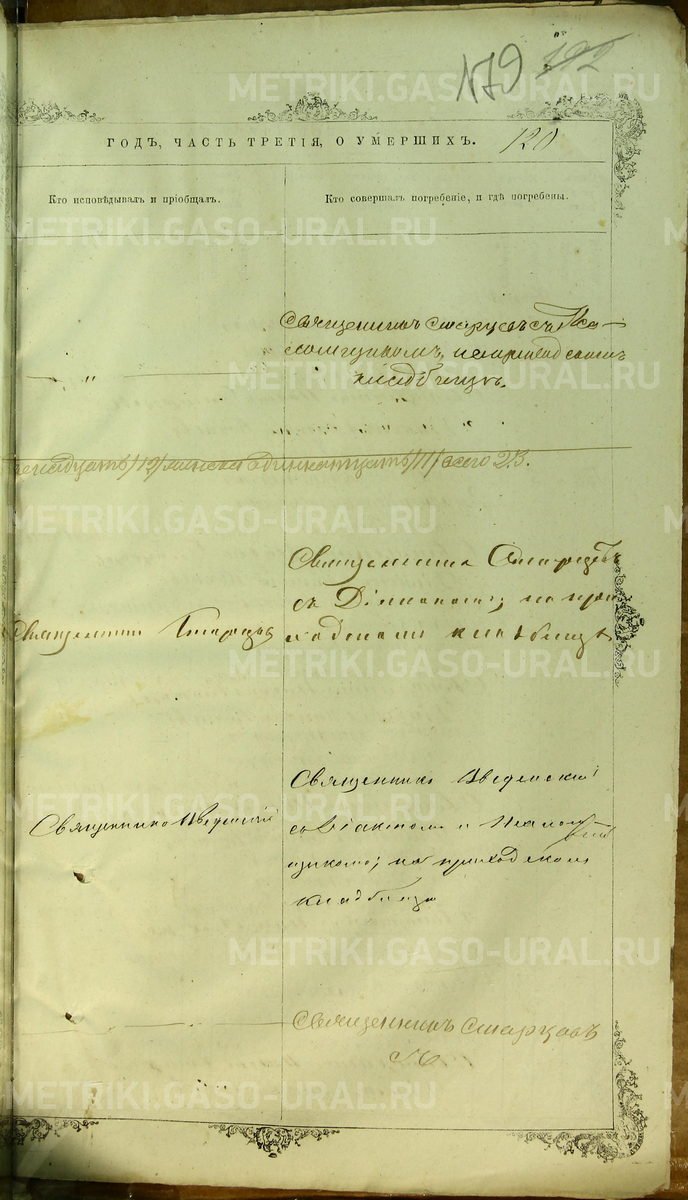 179 192
ГОДЪ, ЧАСТЬ ТРЕТІЯ, О УМЕРШИХЪ. 120
Кто исповѣдывалъ и пріобщалъ.
Кто совершалъ погребеніе, и гдѣ погребены.
Священникъ Старцевъ съ Пса-
ломщикомъ, на приходскомъ
кладбищѣ.
/12/ женска одиннатцать /11/ всего 23.
Священникъ Старцевъ
Священникъ Старцевъ
съ Діакономъ; на при-
ходскомъ кладбищѣ
Священникъ Введенскій
Священникъ Введенскій
съ Діакономъ и Псалом-
щикомъ; на приходскомъ
кладбищѣ
Священникъ Старцевъ
METRIKI.GASO-URAL.RU